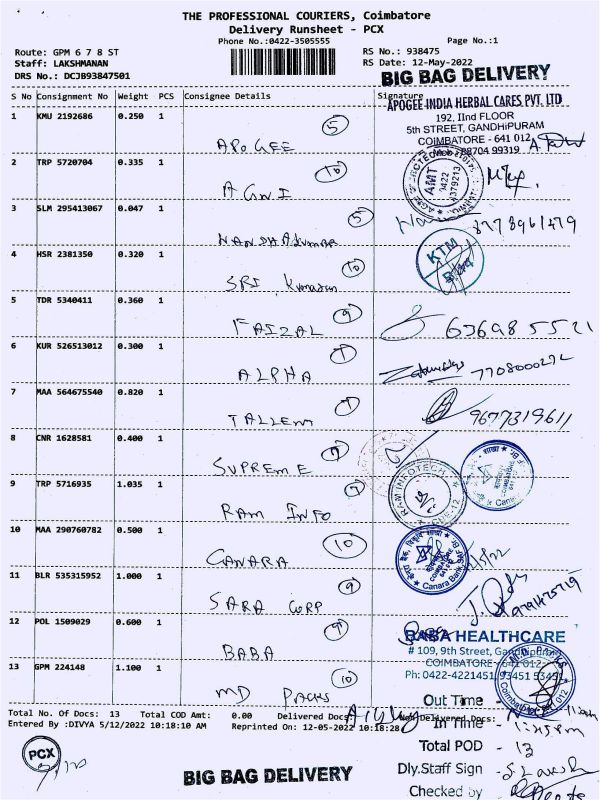 THE PROFESSIONAL COURIERS, Coimbatore
Delivery Runsheet - PCX
Phone No.:0422-3505555
Page No.:1
Route: GPM 6 7 8 ST
RS No.: 938475
Staff: LAKSHMANAN
RS Date: 12-May-2022
DRS No.: DCJB93847501
BIG BAG DELIVERY
S No Consignment No Weight PCS Consignee Details Signature
APOGEE INDIA HERBAL CARES PVT. LTD
192, IInd FLOOR
5th STREET, GANDHIPURAM
COIMBATORE - 641 012
88704 99319
1 KMU 2192686 0.250 1 APOGEE 5
2 TRP 5720704 0.335 1 AGNI 10
AMT
3 SLM 295413067 0.047 1 5
4 HSR 2381350 0.320 1 SRI Kumaran 10
KTM
5 TDR 5340411 0.360 1 FAIZAL 9
6 KUR 526513012 0.300 1 ALPHA
7708000272
7 MAA 564675540 0.820 1 TALLEM
9677319611
8 CNR 1628581 0.400 1 SUPREME
9 TRP 5716935 1.035 1 RAM INFO
RAM INFOTECH
CBE-12
10 MAA 290760782 0.500 1 CANARA 10
Canara Bank
11 BLR 535315952 1.000 1 SARA CORP 9
12 POL 1509029 0.600 1 BABA 9
BABA HEALTHCARE
# 109, 9th Street, Gandhipuram
COIMBATORE - 641 012
Ph: 0422-4221451, 93451 53451
13 GPM 224148 1.100 1 MD PACKS 10
Total No. Of Docs: 13 Total COD Amt: 0.00 Delivered Docs: Non-Delivered Docs:
Entered By :DIVYA 5/12/2022 10:18:10 AM Reprinted On: 12-05-2022 10:18:28
Out Time -
In Time -
Total POD - 13
Dly.Staff Sign -
Checked by
PCX
BIG BAG DELIVERY